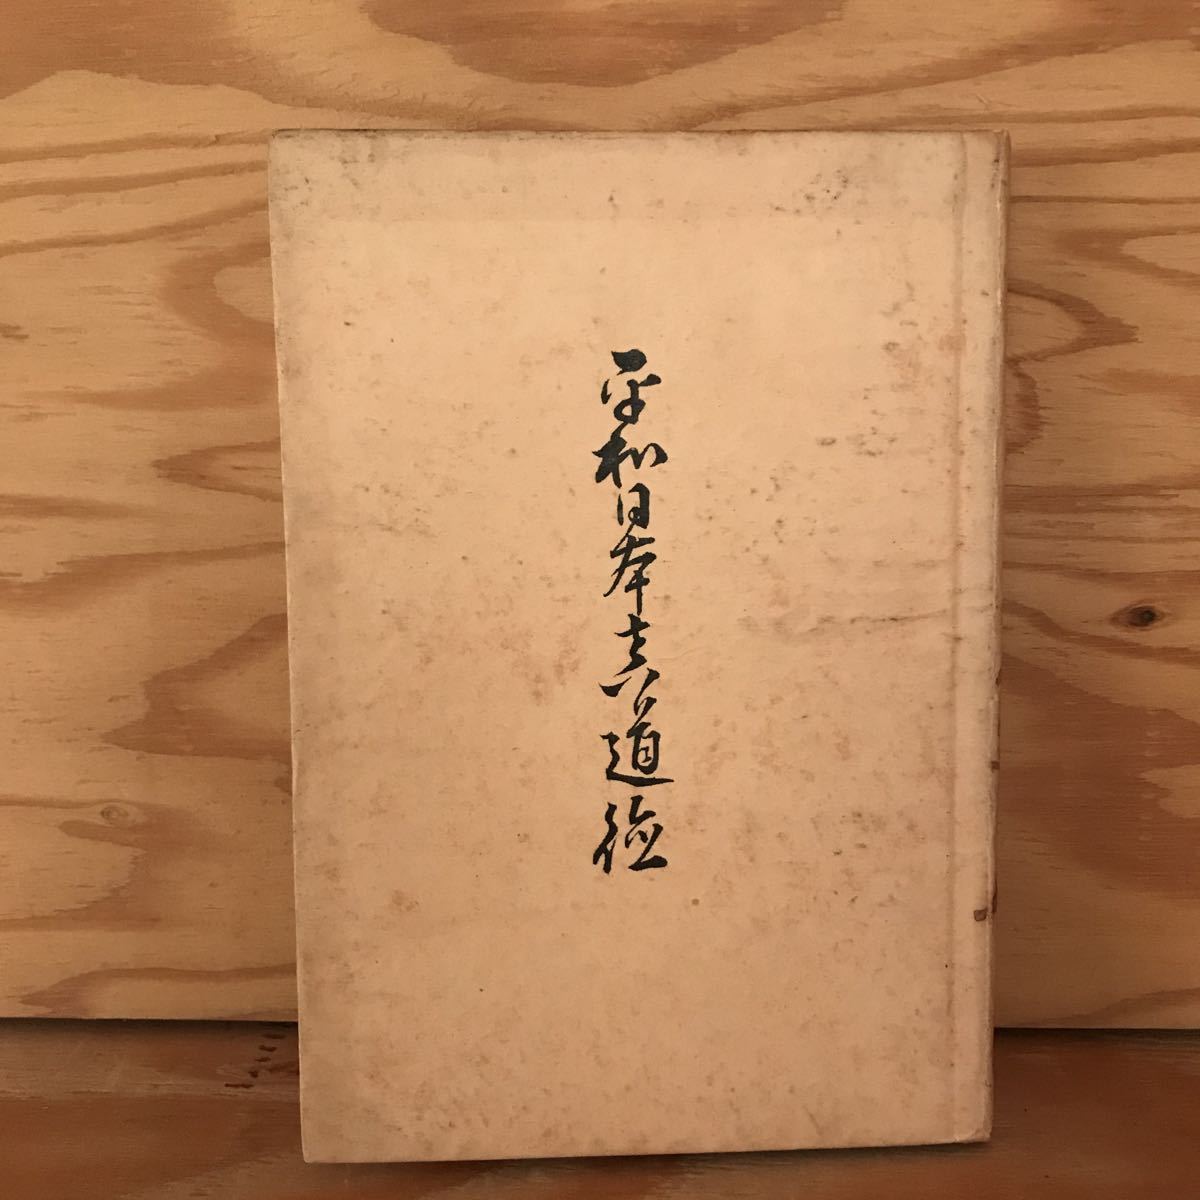 平和日本真道徳